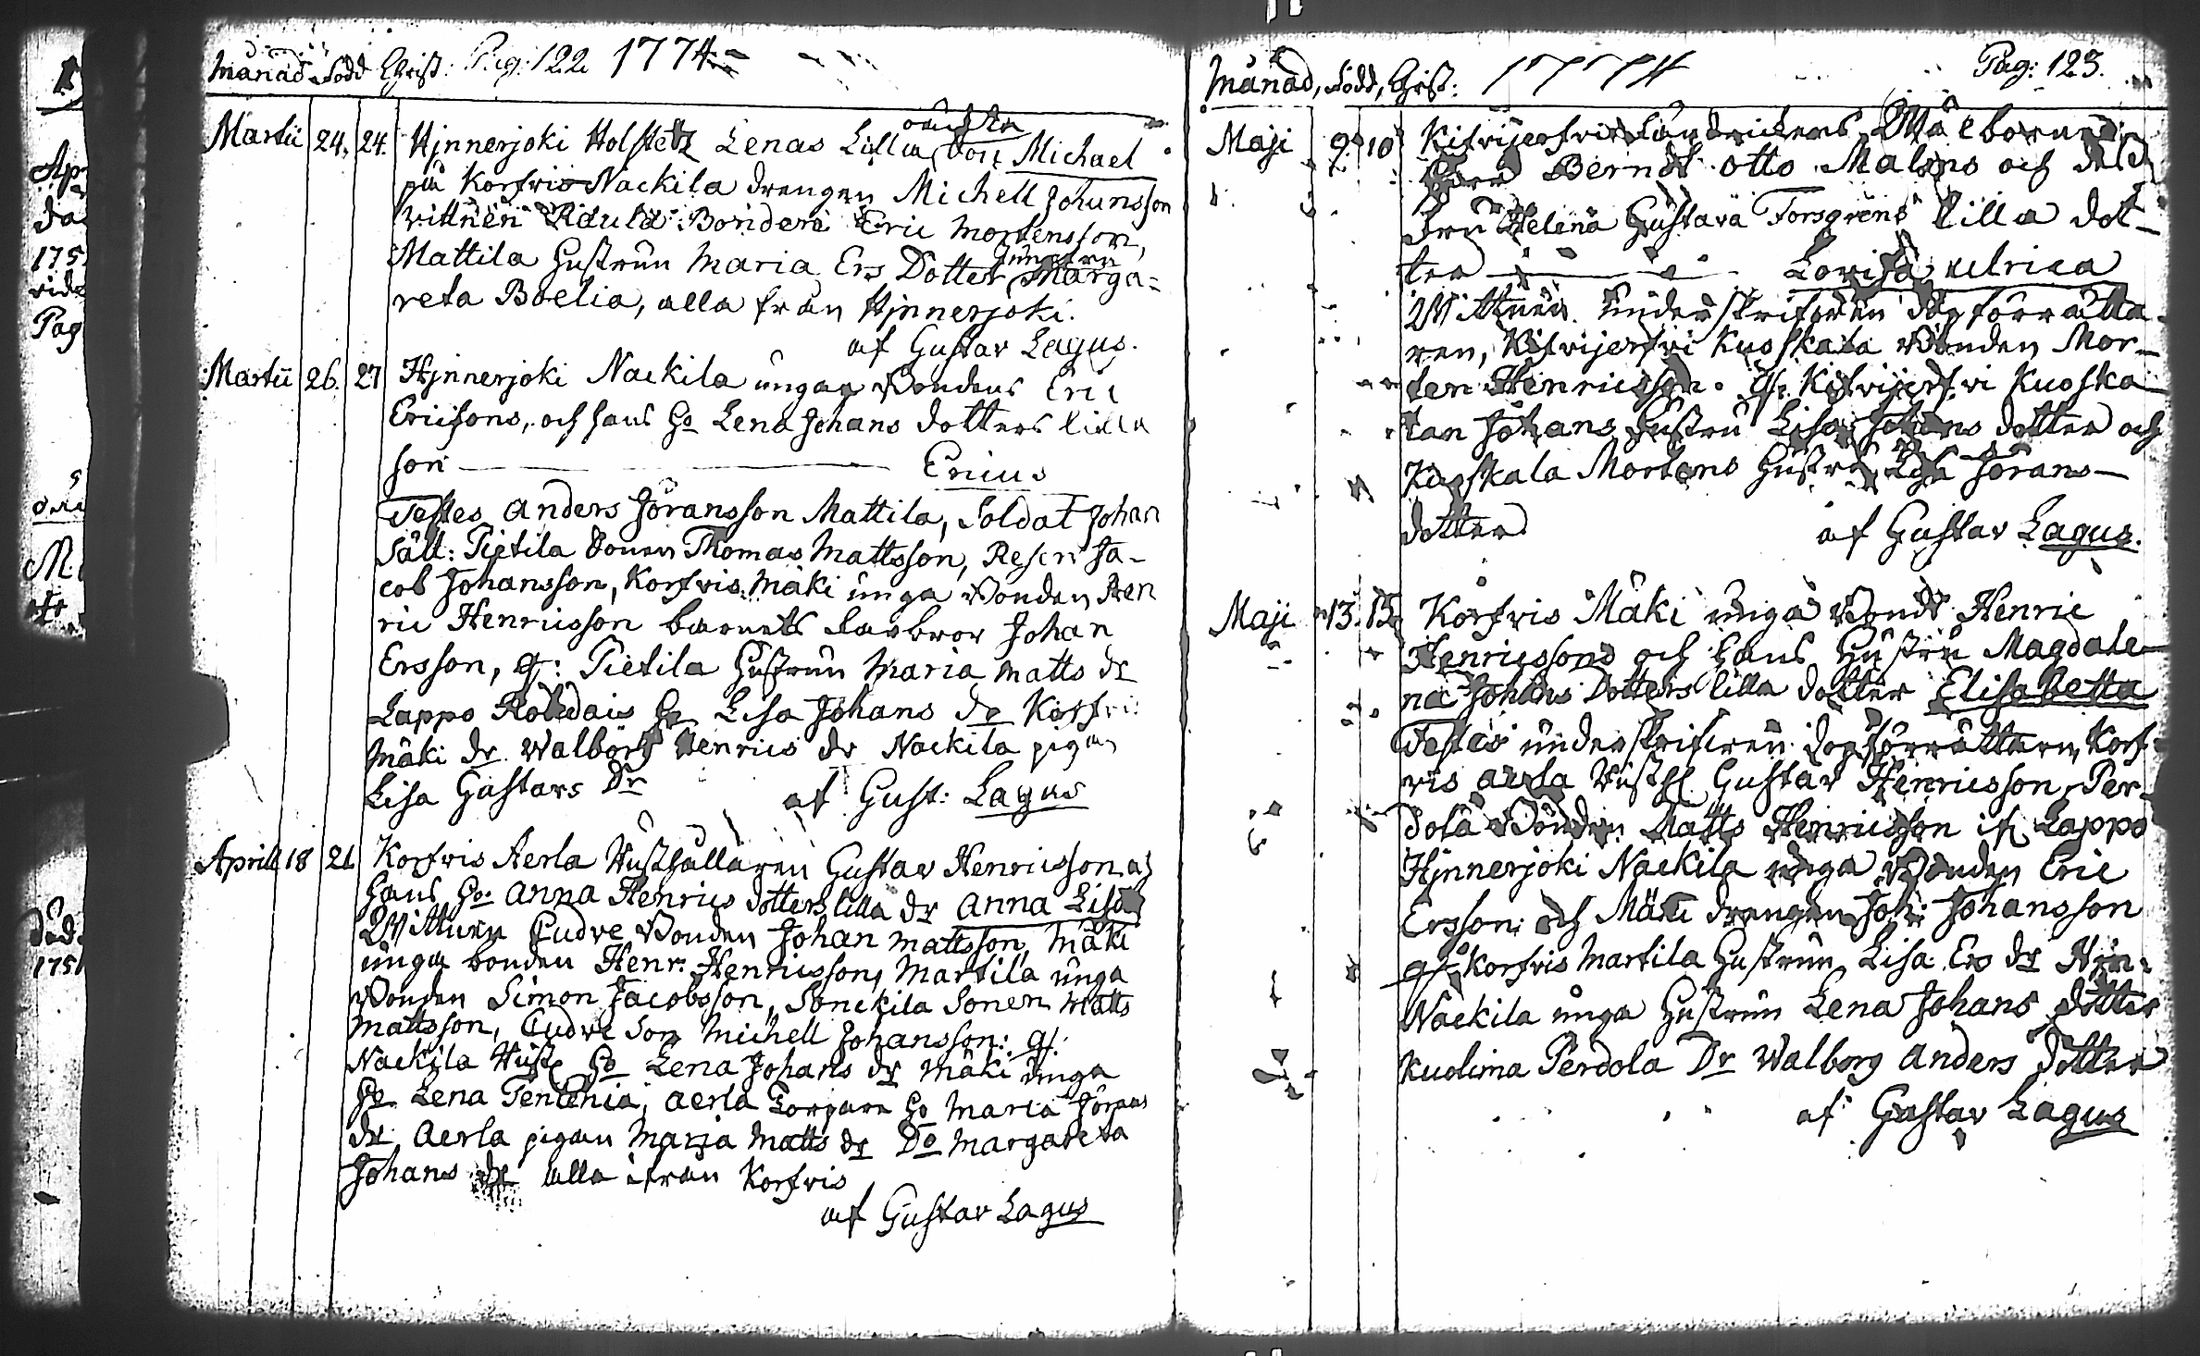 Månad. Född Christ: Pag: 122 1774
Martii 24. 24. Hinnerjoki Holstetz Lenas Lilla oächta son Michael
på Korfvis Nackila drengen Michell Johansson
vittnen Raula Bonden Eric Mortensson,
Mattila Hustrun Maria Ers Dotter Jungfru Marga=
reta Boelia, alla från Hinnerjoki.
af Gustav Lagus.
Martii 26. 27 Hinnerjoki Nackila unga Bondens Eric
Ericsons, och hans Ho Lena Johans dotters lilla
son Ericus
Testes Anders Jöransson Mattila, Soldat Johan
Säll: Pietila Sonen Thomas Mattsson, Reserv Ja-
cob Johansson, Korfvis Mäki unga Bonden Hen
ric Henricsson barnets farbror Johan
Ersson, qf: Pietila Hustrun Maria Matts dr
Lappo Ho Lisa Johans dr Korfvis
Mäki dr Walborg Henrics dr Nackila pigan
Lisa Gustavs Dr af Gust: Lagus
Aprill 18 21 Korfvis Aerla Rusthållaren Gustav Henricsson och
hans Ho Anna Henrics dotters lilla dr Anna Lisa
Wittnen Eudre Bonden Johan Mattsson, Mäki
unga bonden Henr. Henricsson, Martila unga
Bonden Simon Jacobsson, Sonckila Sonen Matts
Mattsson, Eudre Son Michell Johansson: qf.
Nackila Rusth Ho Lena Johans dr Mäki unga
Ho Lena, Aerla Torpare Ho Maria Jörans
dr, Aerla pigan Maria Matts dr Do Margareta
Johans dr alla ifrån Korfvis
af Gustav Lagus
Månad, Född, Christ: 1774 Pag: 123.
Maji 9. 10 Wälborne
Herr Berndt Otto Malms och dess
Fru Helena Gustava Forsgrens lilla dot-
ter Lovisa Ulrica
Wittnen. Underskrifven dopförrätta
ren, Kifvijerfvi Kuoskala Bonden Mor-
ten Henricsson. qf: Kifvijerfvi Kuoska
lan Johans Hustru Lisa Johans dotter och
Kuoskala Mortens Hustru Lisa Jörans-
dotter af Gustav Lagus.
Maji 13. 15. Korfvis Mäki unga Bond Henric
Henricssons och hans Hustru Magdale-
na Johans Dotters lilla dotter Elisabetta
Testes underskrifven dopförrättaren, Korf-
vis Aerla Rusth Gustav Henricsson, Per-
dola Bonden Matts Henricsson if Lappo
Hinnerjoki Nackila unga Bonden Eric
Ersson och Mäki drengen Joh: Johansson
qf. Korfvis Martila Hustrun Lisa Ers dr Hin:
Nackila unga Hustrun Lena Johans dotter
Kuolima Perdola Dr Walborg Anders dotter
af Gustav Lagus